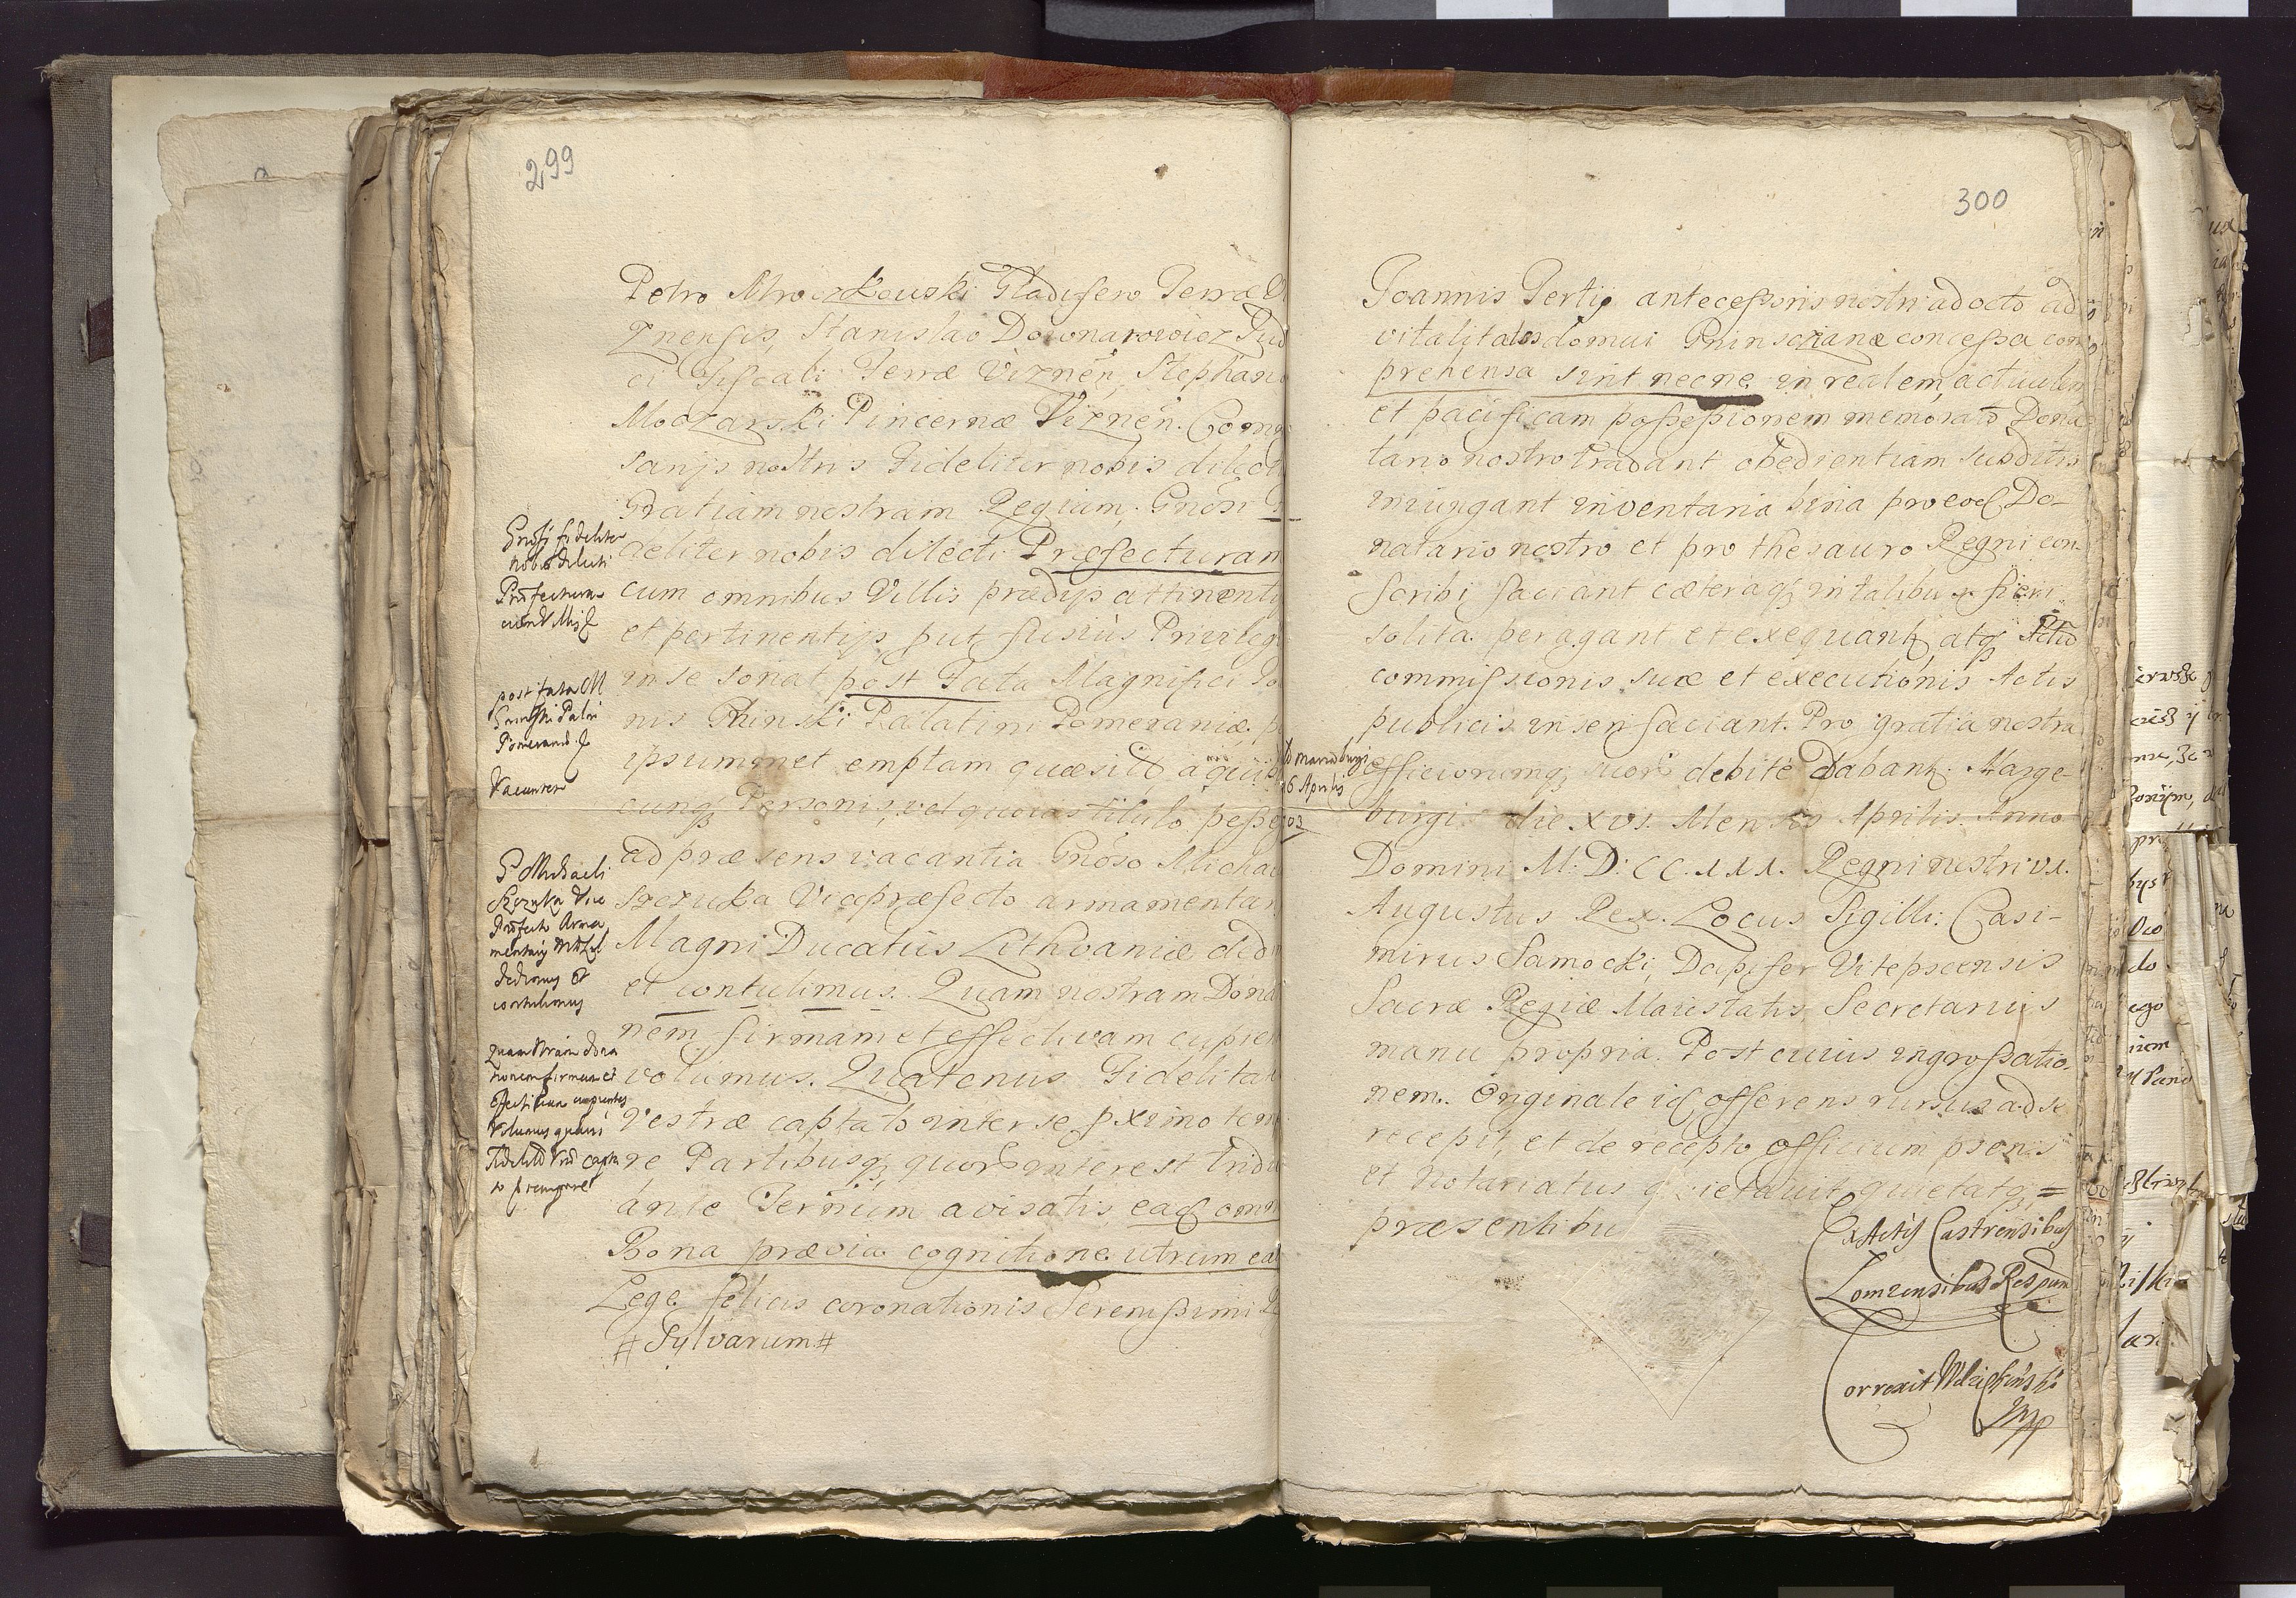 299
Petro Mroczkowski Gladifero Terræ Vi
znensis, Stanislao Downarowicz Jud
ci Fiscali Terræ Viznen, Stephano
Moczarski Pincernæ Viznen. Comis
sarijs nostris Fideliter nobis dilect
Gratiam nostram Regiam. Gnosi
deliter nobis dilecti Præfecturam
cum omnibus Villis prædijs attinentijs
et pertinentijs, put fusius Privileg
in se sonat post Fata Magnifici Jo
nis Grinski Palatini Pomeraniæ, p
ipsummet emptam quæsita, a
cunq Personis, vel quovis titulo posse
ad præsens vacantia Gnoso Michae
Szczuka Vicepræfecto armamentar
Magni Ducatus Lithvaniæ ded
et contulimus. Quam nostram Dona
nem firmam et effectivam cupien
volumus. Quatenus Fidelitat
Vestræ captato inter se pximo tem
re Partibusq quor interest tridu
ante Ternum avisatis, ead omn
Bona prævia cognitione utrum ea
Lege felicis coronationis Serenissimi
# Sylvarum #
Gnosi fideliter
nobis dilecti
Præfectura
cum
post fata M
Palni
Pomerand
Vacantem
G Michaeli
Szczuka Vice
Præfecto Arma
mentarij M D L
dedimus et
contulimus
Quam Nram dona
tionem firmam et
effectivam cupientes
Volumus quatenus
Fidelit Vræ capta
to p tempore
300
Joannis Tertij antecessoris nostri ad octo ad
vitalitates domui Grinscianæ concessa com
prehensa sint necne, in realem, actualem
et pacificam possessionem memorato Dona
tario nostro tradant obedientiam subditis
iniungant inventaria bina pro eod Do-
natario nostro et pro thesauro Regni con-
scribi faciant cæteraq in talibus fieri
solita peragant et exequant, atq Actu
commissionis suæ et executionis Actis
publicis inseri faciant. Pro gratia nostra
officiorumq suor debite Dabant. Marge-
burgi die XVI. Mensis Aprilis Anno
Domini M: D: CC. III. Regni nostri VI.
Augustus Rex. Locus Sigilli: Casi-
mirus Samocki, Dapifer Vitepscensis
Sacræ Regiæ Maiestatis Secretarius
manu propria. Post cuius ingrossatio-
nem. Originale id offerens rursus ad se
recepit, et de recepto officium præns
et Notariatus quietavit, quietatq =
præsentibu
D Mariæburgi
16 Aprilis
03
Ex Actis Castrensibus
Lomzensibus Respon
Correxit
mpp